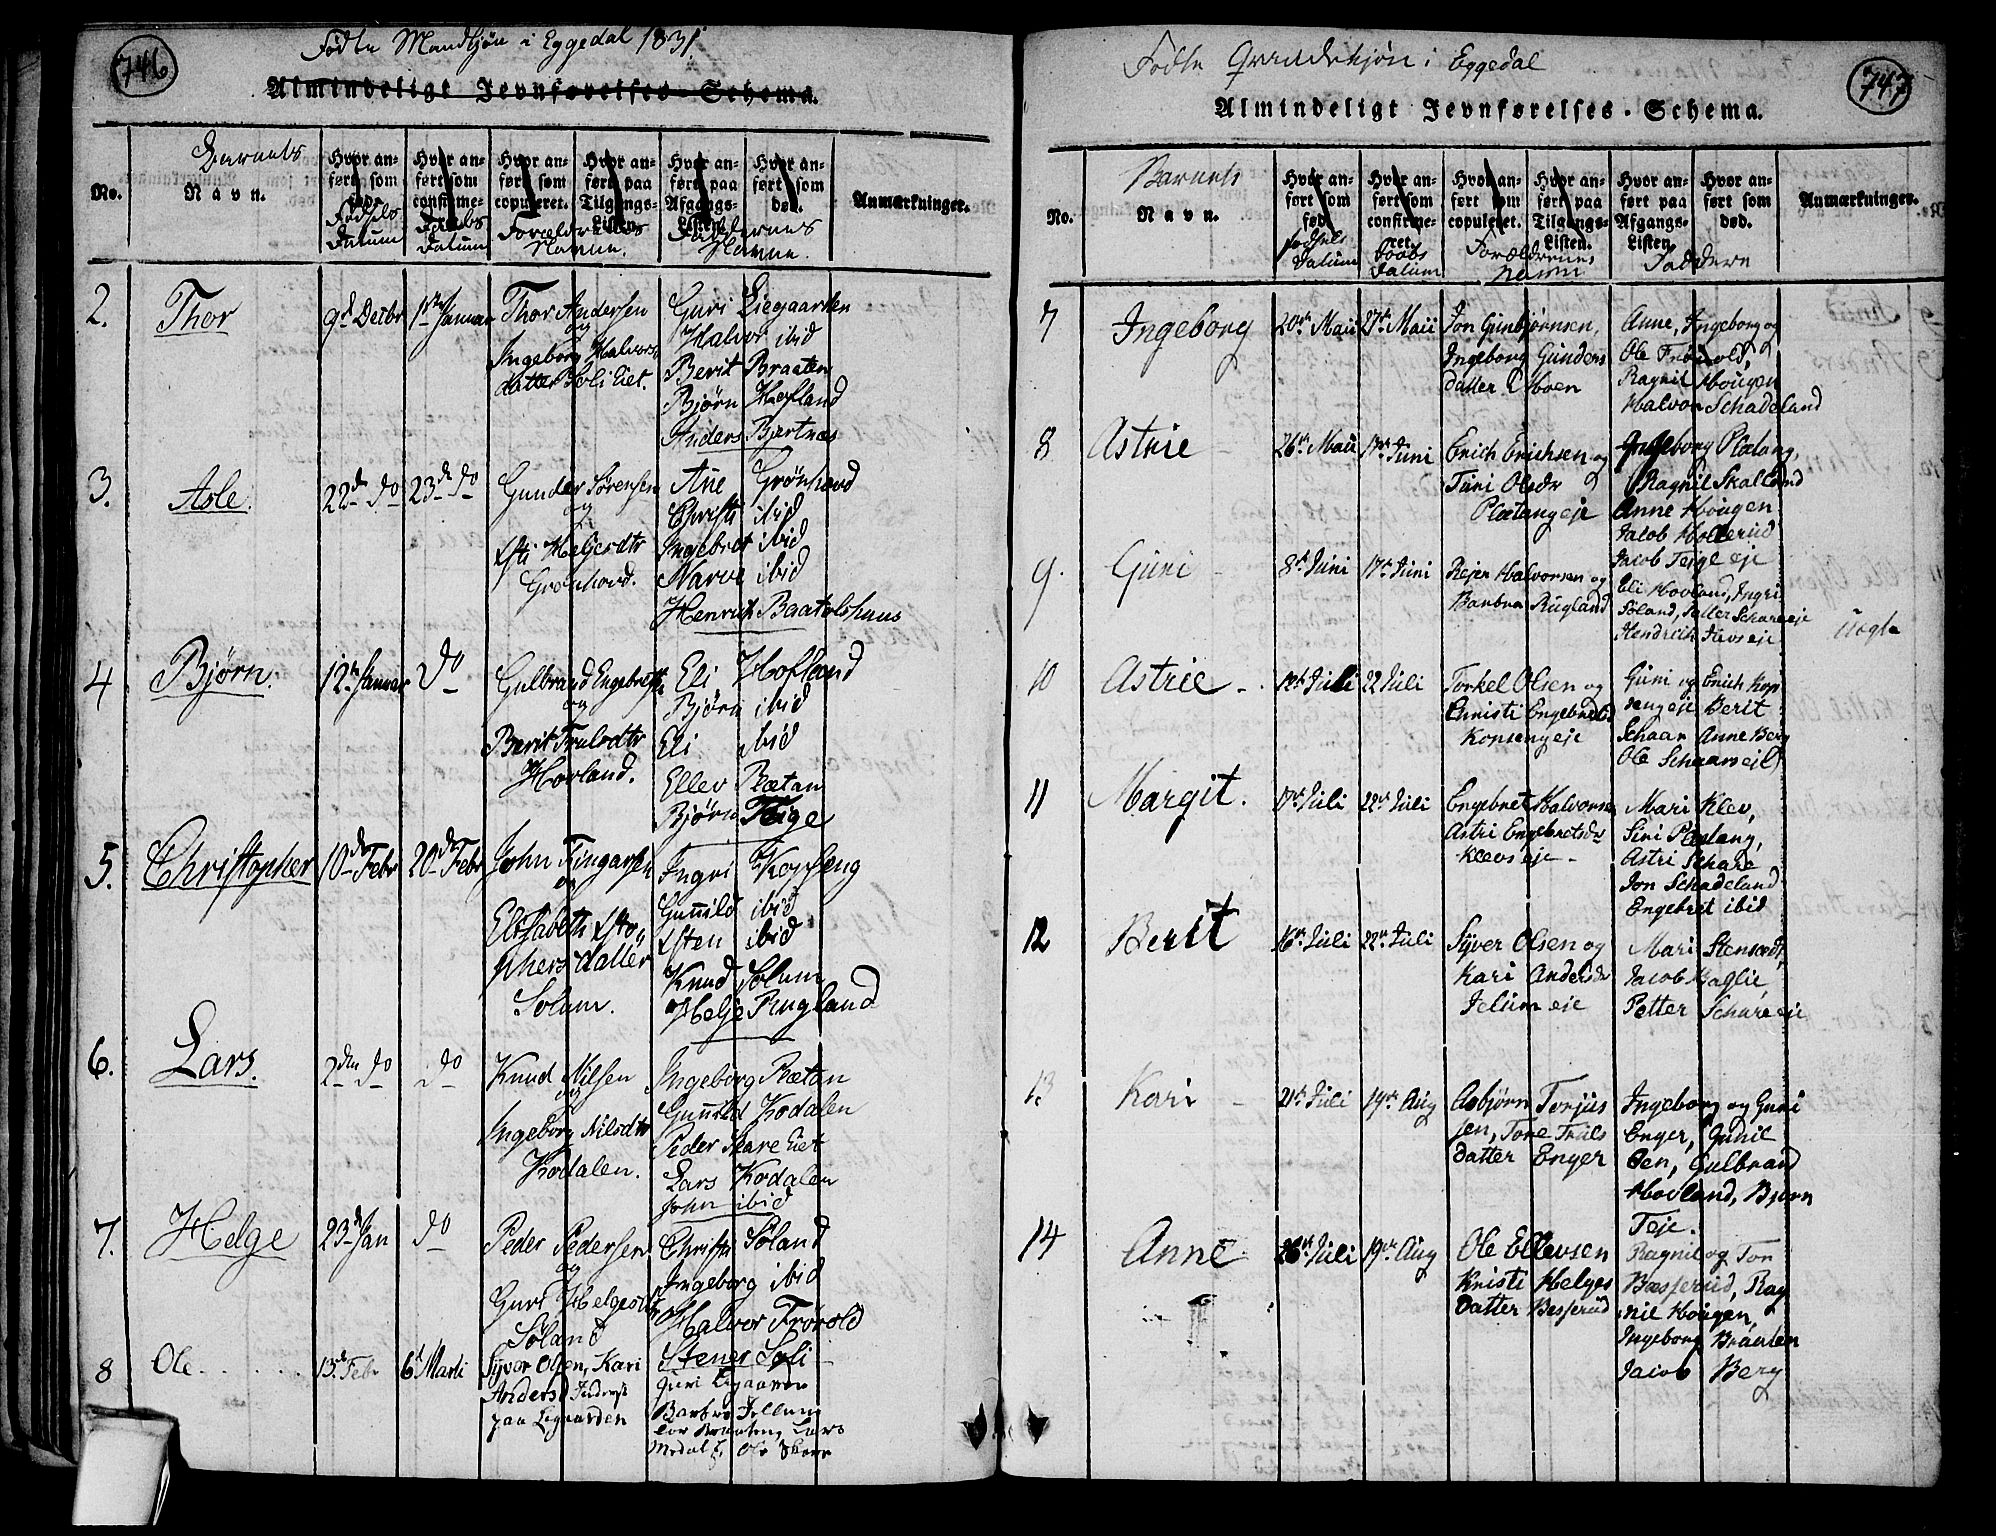 746
Fødte Mandkjøn i Eggedal 1831
Almindeligt Jevnførelses-Schema.
No.
Barnets
Navn.
Hvor anført som fød.
Fødsels Datum
Hvor anført som confirmeret.
Daabs Datum
Hvor anført som copuleret.
Hvor anført paa Tilgangs-Listen.
Forældrenes Navne.
Hvor anført paa Afgangs-Listen.
Hvor anført som død.
Faddernes Navne.
Anmærkninger.
2. Thor 9d Decbr 1ste Januar
Thor Andersen
og
Ingeborg Halvors
datter Soli Eiet.
Guri Liegaarden
Halvor ibid
Berit Braaten
Bjørn Hofland
Anders Bjertnæs
3. Asle. 22d do 23d do
Gunder Sørensen
og
Helgesdtr
Grønhovd.
Ane Grønhovd
Christi ibid
Ingebret ibid
Narve ibid
Henrich Baatolshuus
4 Bjørn. 12te Januar do
Gulbrand Engebretsn
og
Berit Trulsdtr
Hovland.
Eli Hofland
Bjørn ibid
Eli ibid
Ellev Plætan
Bjørn Teige
5. Christopher 10de Febr 20de Febr
John
og
Elisabeth Xsto
phersdatter
Solum.
Ingri Kopseng
Gunild ibid
Xsten ibid
Knud Solum
Helje Rugland
6. Lars. 2den do do
Knud Nilsen
og
Ingeborg Nilsdtr
Kodalen.
Ingeborg Plætan
Gunild Kodalen
Peder Skare Eiet
Lars Kodalen
John ibid
7. Helge 23d Jan do
Peder Pedersen
og
Guri Helgesdtr
Søland
Christi Søland
Ingeborg ibid
Halvor Frøvold
Stener Soli
8 Ole 13d Febr 6d Marti
Syver Olsen, Kari
Andersd
paa Ligaarden
Guri Ligaarden
Barbro Jellum
Braaten, Lars
Medal, Ole Skare
747
Fødte Qvindekjøn i Eggedal
Almindeligt Jevnførelses-Schema.
No.
Barnets
Navn.
Hvor anført som fød.
Fødsels Datum
Hvor anført som confirmeret.
Daabs Datum
Hvor anført som copuleret.
Hvor anført paa Tilgangs-Listen.
Forældrenes Navn
Hvor anført paa Afgangs-Listen.
Hvor anført som død.
Faddere
Anmærkninger.
7 Ingeborg 20de Maii 27de Maii
Jon Gunbjørnsen,
Ingeborg Gunders
datter Moen
Anne, Ingeborg og
Ole Frøvold,
Ragnil Hougen
Halvor Schadeland
8 Astrie 26de Maii 17de Juni
Erich Erichsen og
Turi Olsdr
Plætangeje
Ingeborg Plætang,
Ragnil Skalland
Anne Hougen
Jacob Hollerud
Jacob Teigl eje
9. Guri 8de Juni 17de Juni
Rejer Halvorsen og
Barbra Rugland
Eli Hovland, Ingri
Søland, Petter Schareeje
Hendrich
Uægte
10 Astrie 12te Juli 22 Juli
Torkel Olsen og
Christi Engebretsd
Kopsengeje
Guri og Erich Kop
sengeje Berit
Schaar Anne Berg
Ole Schaarseje
11 Margit. 17de Juli 22de Juli
Engebret Halvorsn
Astri Engebretsdr
Klevseje
Mari Klev,
Siri Plætang,
Astri Schare
Jon Schadeland
Engebret ibid
12 Berit 16de Juli 22de Juli
Syver Olsen og
Kari Andersdr
Jelumeje
Mari Stensæt,
Jacob Haglie,
Petter Schareeje
13. Kari 21de Juli 19de Aug
Asbjørn Torjus
sen, Tore Truls
datter Enger
Ingeborg og Guri
Enger, Gunil
Øen, Gulbrand
Hovland, Bjørn
Teje.
14 Anne 26de Juli 19de Aug
Ole Ellevsen
Kristi Helges
datter Besserud
Ragnil og Tor
Bæsserud, Rag
nil Hougen,
Ingeborg Braaten
Jacob Berg